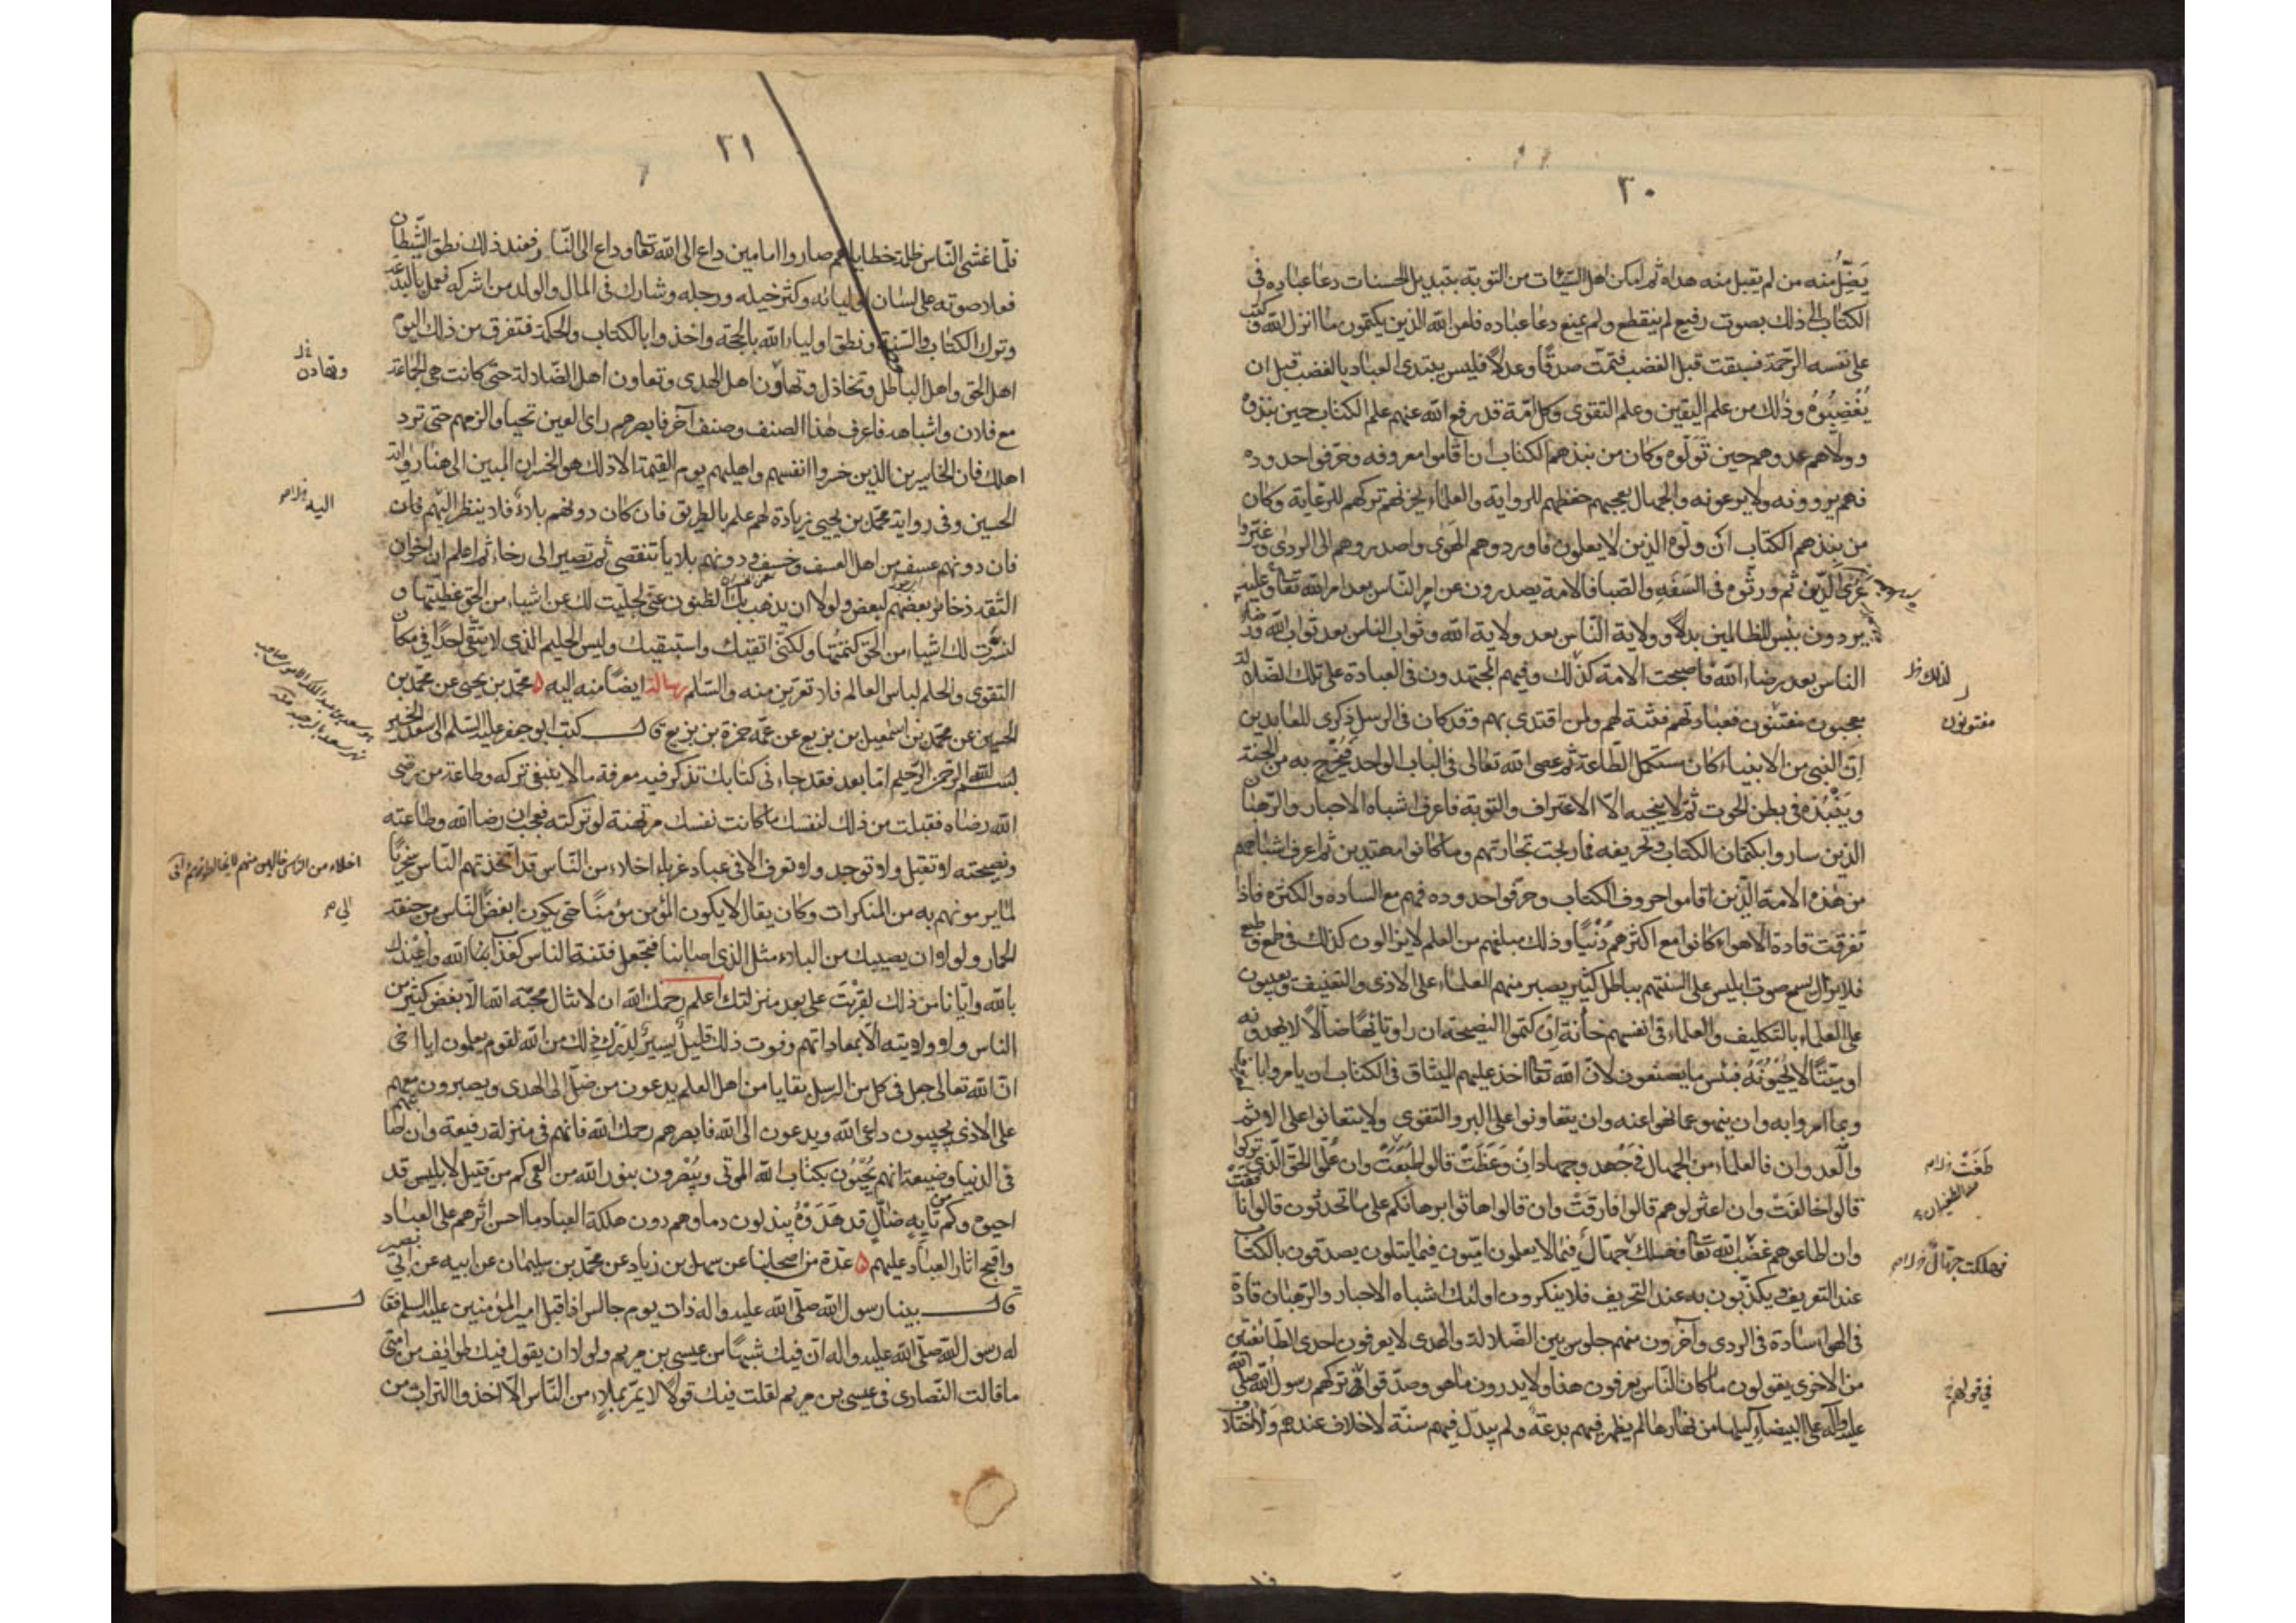 ٣٠
يَضِلُّ منه من لم يقبل منه هداه ثم امكن اهل السّيّئات من التوبة بتبديل الحسنات دعا عباده فى
الكتاب الى ذلك بصوت رفيع لم ينقطع ولم يمنع دعا عباده فلعن الله الذين يكتمون ما انزل الله وكتب
على نفسه الرّحمة فسبقت قبل الغضب فتمّت صدقًا وعدلًا فليس يبتدئ العباد بالغضب قبل ان
يُغْضِبُوهُ وذلك من علم اليقين وعلم التقوى وكل امّة قد رفع الله عنهم علم الكتاب حين نبذوه
وولّاهم عدوهم حين تَوَلَّوه وكان من نبذهم الكتاب ان اقاموا حروفه وحرّفوا حدوده
فهم يروونه ولا يرعونه والجهال يعجبهم حفظهم للرواية والعلماء يحزنهم تركهم للرعاية وكان
من نبذهم الكتاب ان ولّوه الذين لا يعلمون فاوردوهم الهوى واصدروهم الى الردى وغيّروا
عُرَى الدّين ثم ورثوه فى السَفَهِ والصّبا فالامة يصدرون عن امر النّاس بعد امر الله تعالى وعليه
يردون بئس للظالمين بدلًا وولاية النّاس بعد ولاية الله وثواب الناس بعد ثواب الله ورضا
الناس بعد رضاء الله فاصبحت الامة كذلك وفيهم المجتهدون فى العبادة على تلك الضّلالة
لذلك خ
معجبون مفتنون فعبادتهم فتنة لهم ولمن اقتدى بهم وقد كان فى الرسل ذِكرى للعابدين
مفتونون
انّ النبى من الانبياء كان يستكمل الطّاعة ثم عصى الله تعالى فى الباب الواحد فيُخرَج به من الجنة
ويَنْبُذه فى بطن الحوت ثمّ لا ينجيه الّا الاعتراف والتوبة فاعرف اشباه الاحبار والرّهبان
الذين ساروا بكتمان الكتاب وتحريفه فما ربحت تجارتهم وما كانوا مهتدين ثم اعرف اشباههم
من هذه الامة الّذين اقاموا حروف الكتاب وحرّفوا حدوده فهم مع السادة والكثرة فاذا
تفرقت قادة الاهواء كانوا مع اكثرهم دُنْيًا وذلك مبلغهم من العلم لا يزالون كذلك فى طمع وطبع
فلا يزال يسمع صوت ابليس على السنتهم بباطل كثير يصبر منهم العلماء على الاذى والتعنيف ويعيبون
على العلماء بالتّكليف والعلماء فى انفسهم خانة ان كتموا النصيحة ان راوا تائهًا ضالًّا لا يهدونه
او ميّتًا لا يُحْيُونَهُ فبئس ما يصنعون لانّ الله تعالى اخذ عليهم الميثاق فى الكتاب ان يامروا بالمعروف
وبما امروا به وان ينهوا عما نهوا عنه وان يتعاونوا على البر والتقوى ولا يتعانوا على الاثم
والعدوان فالعلماء من الجهال فى جَهْد وجهاد ان وَعَظَتْ قالوا طغَتْ وان علّموا الحقّ الّذى تركوا
طَغَتْ
قالوا خالفَتْ وان اعتزلوهم قالوا فارقَتْ وان قالوا هاتوا برهانكم على ما تحدثون قالوا نافقت
وان اطاعوهم غضب الله تعالى فهلك جهّال فيما لا يعلمون امّيون فيما يتلون يصدّقون بالكتاب
فهلكت جهّال
عند التعريف ويكذّبون به عند التحريف فلا ينكرون اولئك اشباه الاحبار والرّهبان قادة
فى الهوى سادة فى الردى وآخرون منهم جلوس بين الضّلالة والهدى لا يعرفون احدى الطّائفتين
من الاخرى يقولون ما كان النّاس يعرفون هذا ولا يدرون ما هو وصدّقوا تركهم رسول الله صلى الله
فى قولهم
عليه وآله على البيضاء ليلها من نهارها لم يظهر فيهم بدعة ولم يبدّل فيهم سنّة لا خلاف عندهم ولا اختلاف
٣١
فلمّا غشى النّاس ظلمة خطاياهم صاروا امامين داع الى الله تعالى وداع الى النّار فعند ذلك نطق الشّيطان
فعلا صوته على لسان اوليائه وكثر خيله ورجله وشارك فى المال والولد من اشركه فعمل بالبدعة
وترك الكتاب والسّنة ونطق اولياء الله بالحجة واخذوا بالكتاب والحكمة فتفرق من ذلك اليوم
اهل الحق واهل الباطل وتخاذل وتهاون اهل الهدى وتعاون اهل الضّلالة حتى كانت هى الجماعة
وتهادن
مع فلان واشباهه فاعرف هذا الصنف وصنف آخر فابصرهم راى العين تحيا والزمهم حتى ترد
اهلك فان الخاسرين الذين خسروا انفسهم واهليهم يوم القيمة الا ذلك هو الخسران المبين الى هنا رواية
الحسين وفى رواية محمّد بن يحيى زيادة لهم علم بالطريق فان كان دونهم بلاء فلا ينظر اليهم فان
اليه
فان دونهم عسف من اهل العسف وخسف ودونهم بلايا تنقضى ثم تصير الى رخاء ثم اعلم ان اخوان
الثقة ذخائر بعضهم لبعض ولولا ان يذهب بك الظنون عنّى لجليت لك عن اشياء من الحق غطيتها و
لنشرت لك اشياء من الحق كتمتها ولكنّى اتقيك واستبقيك وليس الحليم الذى لا يتّقى احدًا فى مكان
التقوى والحلم لباس العالم فلا تعرين منه والسّلم رسالة ايضًا منه اليه ٥ محمّد بن يحيى عن محمّد بن
الحسين عن محمّد بن اسمعيل بن بزيع عن عمّه حمزة بن بزيع قال كتب ابو جعفر عليه السّلم الى سعد الخير
بسم الله الرّحمن الرّحيم امّا بعد فقد جاءنى كتابك تذكر فيه معرفة ما لا ينبغى تركه وطاعة من رضى
الله رضاه فقبلت من ذلك لنفسك ما كانت نفسك مرتهنة لو تركته فعجب ان رضا الله وطاعته
ونصيحته لا تقبل ولا توجد ولا تعرف الا فى عباد غرباء اخلاء من النّاس قد اتخذهم النّاس سخريًّا
لما يرمونهم به من المنكرات وكان يقال لا يكون المؤمن مؤمنًا حتى يكون ابغض النّاس من جيفة
الحمار ولولا ان يصيبك من البلاء مثل الذى اصابنا فتجعل فتنة الناس كعذاب الله واعيذك
بالله وايّانا من ذلك لقَرُبْتَ على بعد منزلتك اعلم رحمك الله ان لا تنال محبّة الله الّا ببغض كثير من
الناس ولا ولايته الّا بمعاداتهم وفوت ذلك قليل يسير لدَرْك ذلك من الله لقوم يعلمون ايا اخى
انّ الله تعالى جعل فى كل من الرسل بقايا من اهل العلم يدعون من ضلّ الى الهدى ويصبرون معهم
على الاذى يجيبون داعى الله ويدعون الى الله فابصرهم رحمك الله فانهم فى منزلة رفيعة وان اصابتهم
فى الدنيا وضيعة انهم يُحْيُون بكتاب الله الموتى ويُبْصرون بنور الله من العمى كم من قتيل لابليس قد
احيوه وكم من تايه ضالّ قد هَدَوْهُ يبذلون دماءهم دون هلكة العباد ما احسن اثرهم على العباد
واقبح اثار العباد عليهم ٥ عدّة من اصحابنا عن سهل بن زياد عن محمّد بن سليمان عن ابيه عن ابى بصير
قال بينا رسول الله صلّى الله عليه واله ذات يوم جالس اذ اقبل امير المؤمنين عليه السلم فقال
له رسول الله صلّى الله عليه واله انّ فيك شبهًا من عيسى بن مريم ولولا ان يقول فيك طوايف من امتى
ما قالت النّصارى فى عيسى بن مريم لقلت فيك قولًا لا يمرّ بملاء من النّاس الّا اخذوا التراب من